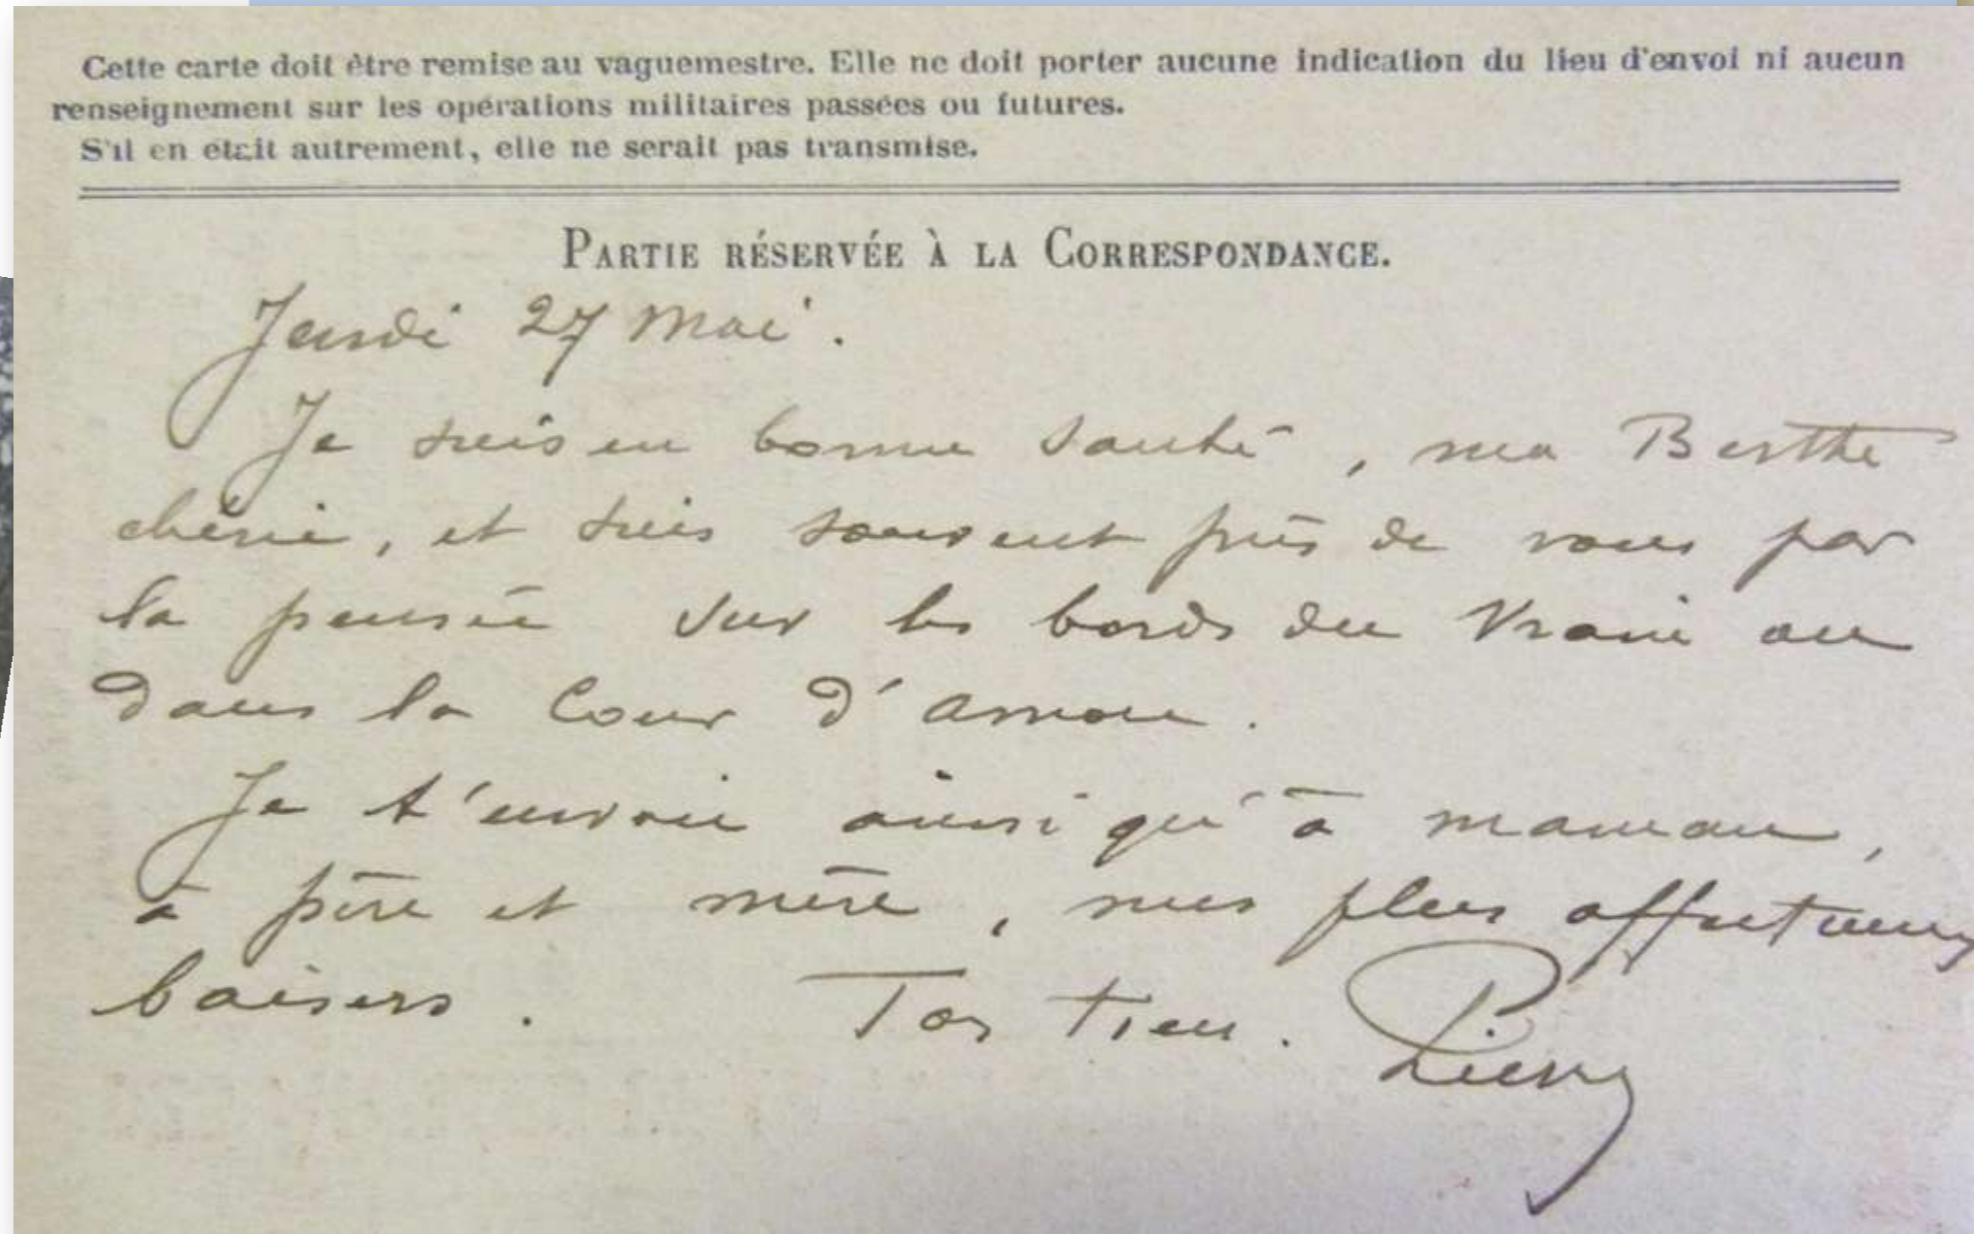 Cette carte doit être remise au vaguemestre. Elle ne doit porter aucune indication du lieu d'envoi ni aucun
renseignement sur les opérations militaires passées ou futures.
S'il en était autrement, elle ne serait pas transmise.
PARTIE RÉSERVÉE À LA CORRESPONDANCE.
Jeudi 27 Mai.
Je suis en bonne santé, ma Berthe
chérie, et suis souvent près de vous par
la pensée sur les bords du ou
dans la Cour d'amour.
Je t'envoie ainsi qu'à maman,
à père et mère, mes plus affectueux
baisers. Ton tien.